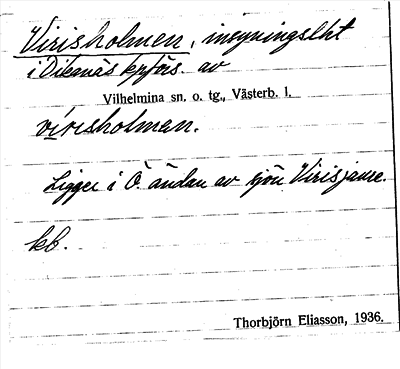 Virisholmen, insynings lht
i Dikanäs kpförs. av
Vilhelmina sn. o. tg., Västerb. l.
vírisholmen.
Ligger i Ö. ändan av sjön Virisjaure.
kb.
Thorbjörn Eliasson, 1936.